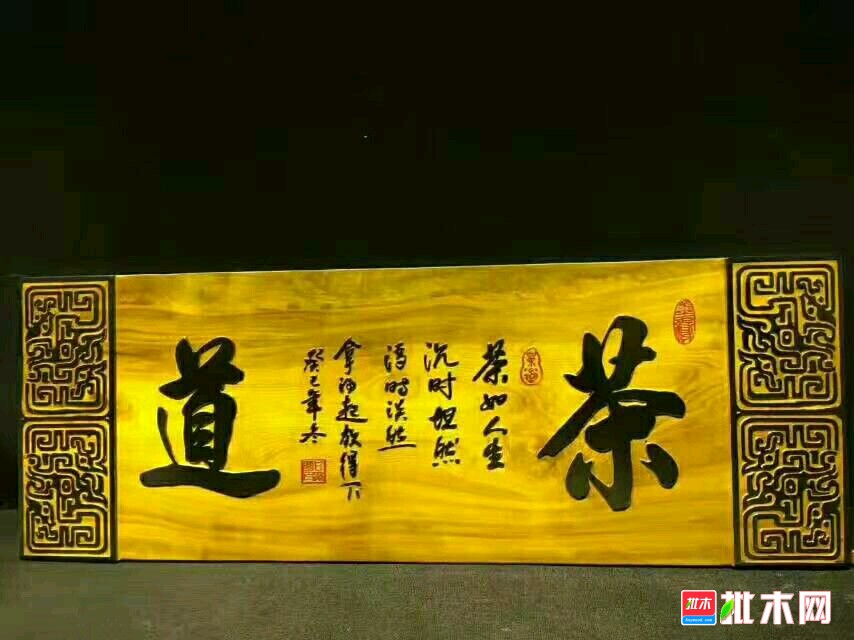 茶
茶如人生
沉时坦然
浮时淡然
拿得起放得下
癸巳年冬
道
批木
批木网